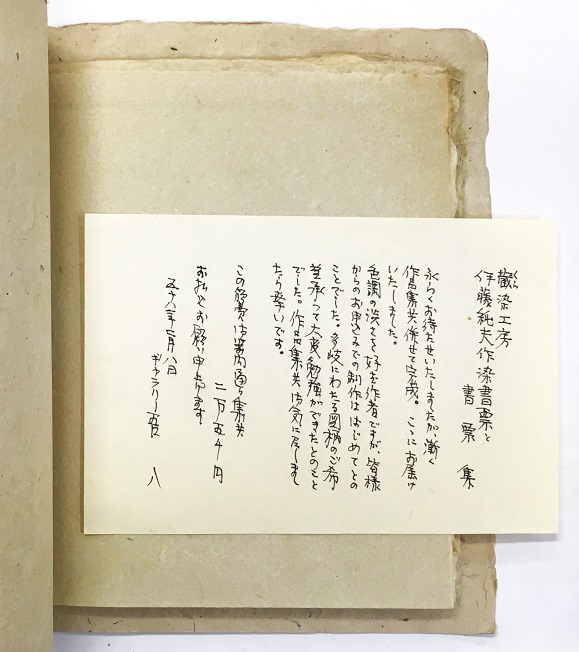 くら
蔵染工房
伊藤純夫作染書票と
書票集
永らくお待たせいたしましたが、漸く
作品集共併せて完成。ここにお届け
いたしました。
色調の渋さを好む作者ですが、皆様
からのお申込みでの制作ははじめてとの
ことでした。多岐にわたる図柄のご希
望承って大変勉強ができたとのこと
でした。作品集共お気に召しまし
たら幸いです。
この頒費は案内通り集共
二万五千円
お払込お願い申上げます。
五十八年二月八日
ギャラリー吾
八